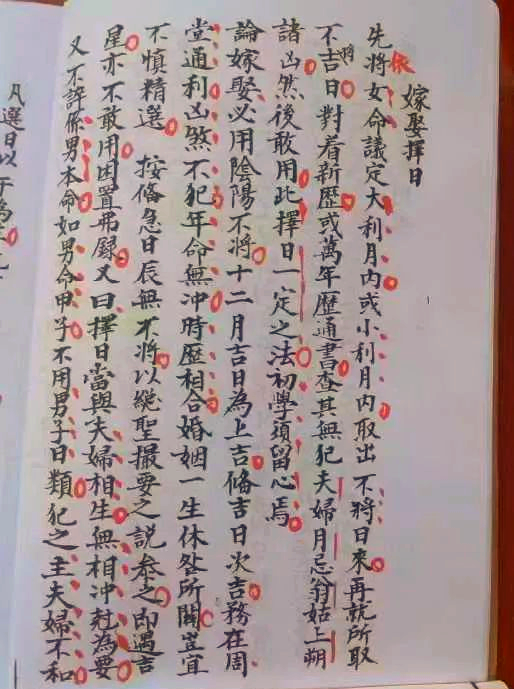 嫁娶擇日
先將女命議定大利月內或小利月內取出不將日來再就所取
依
不吉日對着新歷或萬年歷通書查其無犯夫婦月忌翁姑上朔
將
諸凶然後敢用此擇日一定之法初學須留心焉
論嫁娶必用陰陽不將十二月吉日為上吉脩吉日次吉務在周
堂通利凶煞不犯年命無沖時歷相合婚姻一生休咎所關豈宜
不慎精選 按脩急日辰無不將以纔聖撮要之説叅之即遇吉
星亦不敢用因置弗録又曰擇日當與夫婦相生無相冲尅為要
又不許係男本命如男命甲子不用男子日類犯之主夫婦不和
凡選日以